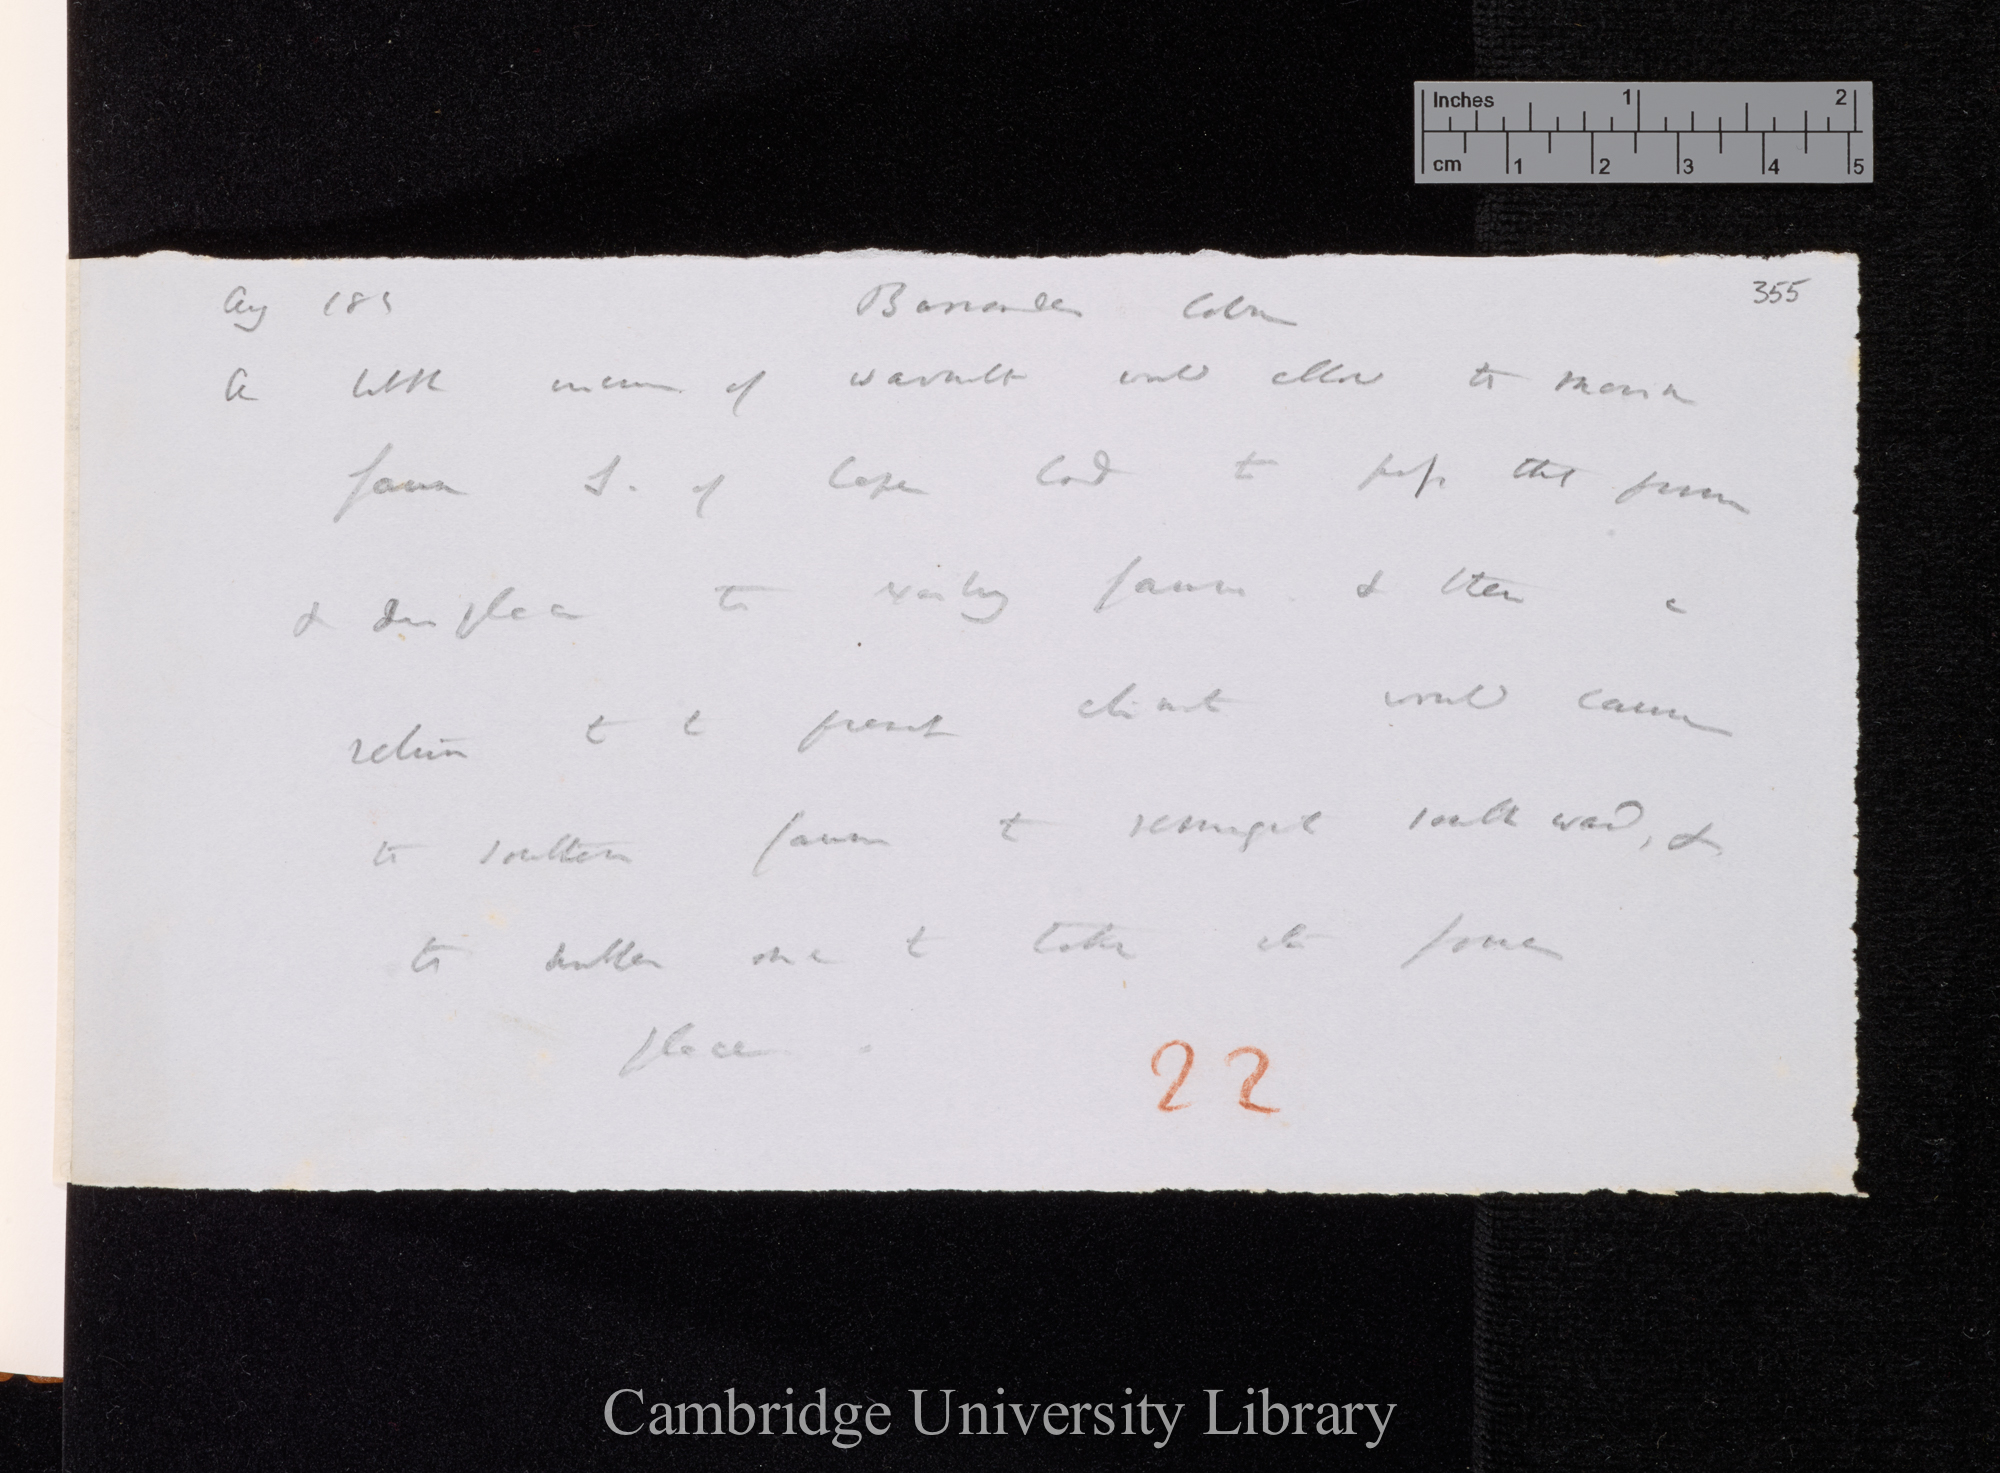 Inches 1 2
cm 1 2 3 4 5
355
Aug 185
Barrande Colon
A little increase of warmth would allow the marine
fauna S. of Cape Cod to pass this
& displace the existing fauna & then a
return to t present climate would cause
the southern fauna to remigrate southward, &
the northern one to take its former
place.
22
Cambridge University Library